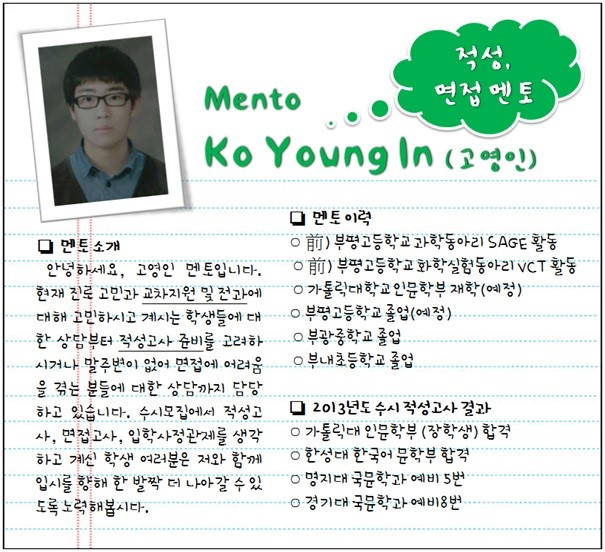 적성,
면접 멘토
Mento
Ko Young In (고영인)
❑ 멘토 소개
안녕하세요, 고영인 멘토입니다.
현재 진로 고민과 교차지원 및 전과에
대해 고민하시고 계시는 학생들에 대
한 상담부터 적성고사 쥰비를 고려하
시거나 말주변이 없어 면접에 어려움
을 겪는 분들에 대한 상담까지 담당
하고 있습니다. 수시모집에서 적성고
사, 면접고사, 입학사정관제를 생각
하고 계신 학생 여러분은 저와 함께
입시를 향해 한 발짝 더 나아갈 수 있
도록 노력해봅시다.
❑ 멘토 이력
○ 前) 부평고등학교 과학동아리 SAGE 활동
○ 前) 부평고등학교 화학실험동아리 VCT 활동
○ 가톨릭대학교 인문학부 재학(예정)
○ 부평고등학교 졸업(예정)
○ 부광중학교 졸업
○ 부내초등학교 졸업
❑ 2013년도 수시 적성고사 결과
○ 가톨릭대 인문학부 (장학생) 합격
○ 한성대 한국어 문학부 합격
○ 명지대 국문학과 예비 5번
○ 경기대 국문학과 예비 8번